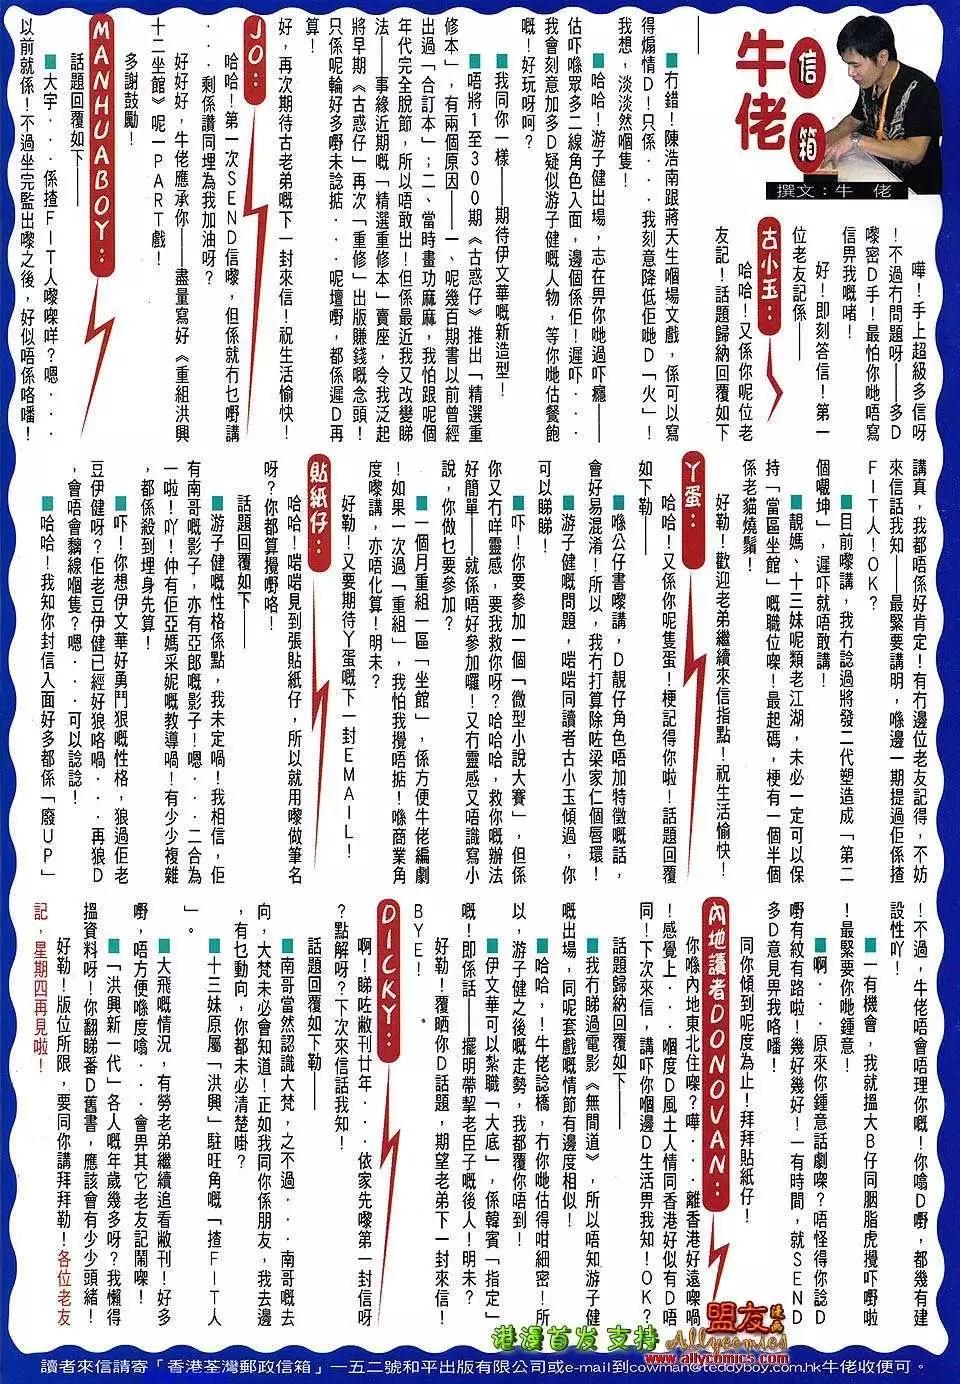 牛佬
信箱
撰文：牛 佬
嘩！手上超級多信呀
！不過冇問題呀——多D
嚟密D手！最怕你哋唔寫
信畀我嘅啫！
好！即刻答信！第一
位老友記係——
古小玉：
哈哈！又係你呢位老
友記！話題歸納回覆如下
——
■冇錯！陳浩南跟蔣天生嗰場文戲，係可以寫
得煽情D！只係．．．我刻意降低佢哋D「火」！
我想，淡淡然嗰隻！
■哈哈！游子健出場，志在畀你哋過吓癮——
估吓喺眾多二線角色入面，邊個係佢！遲吓．．．
我會刻意加多D疑似游子健嘅人物，等你哋估餐飽
嘅！好玩呀呵？
■我同你一樣——期待伊文華嘅新造型！
■唔將1至300期《古惑仔》推出「精選重
修本」，有兩個原因——一、呢幾百期書以前曾經
出過「合訂本」；二、當時畫功麻麻，我怕跟呢個
年代完全脫節，所以唔敢出！但係最近我又改變睇
法——事緣近期嘅「精選重修本」賣座，令我泛起
將早期《古惑仔》再次「重修」出版賺錢嘅念頭！
只係呢輪好多嘢未諗掂．．呢壇嘢，都係遲D再
算！
好，再次期待古老弟嘅下一封來信！祝生活愉快！
JO：
哈哈！第一次SEND信嚟，但係就冇乜嘢講
．．剩係讚同埋為我加油呀？
好好好，牛佬應承你——盡量寫好《重組洪興
十二坐館》呢一PART戲！
多謝鼓勵！
MANHUABOY：
話題回覆如下——
■大宇．．．係揸FIT人嚟㗎咩？嗯．．．
以前就係！不過坐完監出嚟之後，好似唔係咯噃！
講真，我都唔係好肯定！有冇邊位老友記得，不妨
來信話我知——最緊要講明，喺邊一期提過佢係揸
FIT人！OK？
■目前嚟講，我冇諗過將發二代塑造成「第二
個囉坤」，遲吓就唔敢講！
■靚媽、十三妹呢類老江湖，未必一定可以保
持「當區坐館」嘅職位㗎！最起碼，梗有一個半個
係老貓燒鬚！
好勒！歡迎老弟繼續來信指點！祝生活愉快！
丫蛋：
哈哈！又係你呢隻蛋！梗記得你啦！話題回覆
如下勒——
■喺公仔書嚟講，D靚仔角色唔加特徵嘅話，
會好易混淆！所以，我冇打算除咗梁家仁個唇環！
■游子健嘅問題，啱啱同讀者古小玉傾過，你
可以睇睇！
■吓！你要參加一個「微型小說大賽」，但係
你又冇咩靈感，要我救你呀？哈哈哈，救你嘅辦法
好簡單——就係唔好參加囉！又冇靈感又唔識寫小
說，你做乜要參加？
■一個月重組一區「坐館」，係方便牛佬編劇
！如果一次過「重組」，我怕我攪唔掂！喺商業角
度嚟講，亦唔化算！明未？
好勒！又要期待丫蛋嘅下一封EMAIL！
貼紙仔：
哈哈！啱啱見到張貼紙仔，所以就用嚟做筆名
呀？你都算攪嘢咯！
話題回覆如下——
■游子健嘅性格係點，我未定喎！我相信，佢
有南哥嘅影子，亦有亞郎嘅影子！嗯．．．二合為
一啦！吖！仲有佢亞媽采妮嘅教導喎！有少少複雜
，都係殺到埋身先算！
■吓！你想伊文華好勇鬥狠嘅性格，狼過佢老
豆伊健呀？佢老豆伊健已經好狼咯喎．．再狼D
，會唔會黐線嗰隻？嗯．．．可以諗諗！
■哈哈！我知你封信入面好多都係「廢UP」
！不過，牛佬唔會唔理你嘅！你噏D嘢，都幾有建
設性吖！
■一有機會，我就搵大B仔同胭脂虎攪吓嘢啦
！最緊要你哋鍾意！
■啊．．．原來你鍾意話劇㗎？唔怪得你諗D
嘢有紋有路啦！幾好幾好！一有時間，就SEND
多D意見畀我咯噃！
同你傾到呢度為止！拜拜貼紙仔！
內地讀者DONOVAN：
你喺內地東北住㗎？嘩．．離香港好遠㗎喎
！感覺上．．．嗰度D風土人情同香港好似有D唔
同！下次來信，講吓你嗰邊D生活畀我知！OK？
話題歸納回覆如下——
■我冇睇過電影《無間道》，所以唔知游子健
嘅出場，同呢套戲嘅情節有邊度相似！
哈哈，！牛佬諗橋，冇你哋估得咁細密！所
以，游子健之後嘅走勢，我都覆你唔到！
■伊文華可以紮職「大底」，係韓賓「指定」
嘅！即係話——擺明帶挈老臣子嘅後人！明未？
好勒！覆晒你D話題，期望老弟下一封來信！
BYE！
DICKY：
啊！睇咗敝刊廿年．．．依家先嚟第一封信呀
？點解呀？下次來信話我知！
話題回覆如下勒——
■南哥當然認識大梵，之不過．．．南哥嘅去
向，大梵未必會知道！正如我同你係朋友，我去邊
，有乜動向，你都未必清楚啩？
■十三妹原屬「洪興」駐旺角嘅「揸FIT人
」。
■大飛嘅情況，有勞老弟繼續追看敝刊！好多
嘢，唔方便喺度噏．．．會畀其它老友記鬧㗎！
■「洪興新一代」各人嘅年歲幾多呀？我懶得
搵資料呀！你翻睇番D舊書，應該會有少少頭緒！
好勒！版位所限，要同你講拜拜勒！各位老友
記，星期四再見啦！
港漫首发 支持
盟友漫画
Allycomics
www.allycomics.com
讀者來信請寄「香港荃灣郵政信箱」一五二號和平出版有限公司或e-mail到cowman@teddyboy.com.hk牛佬收便可。